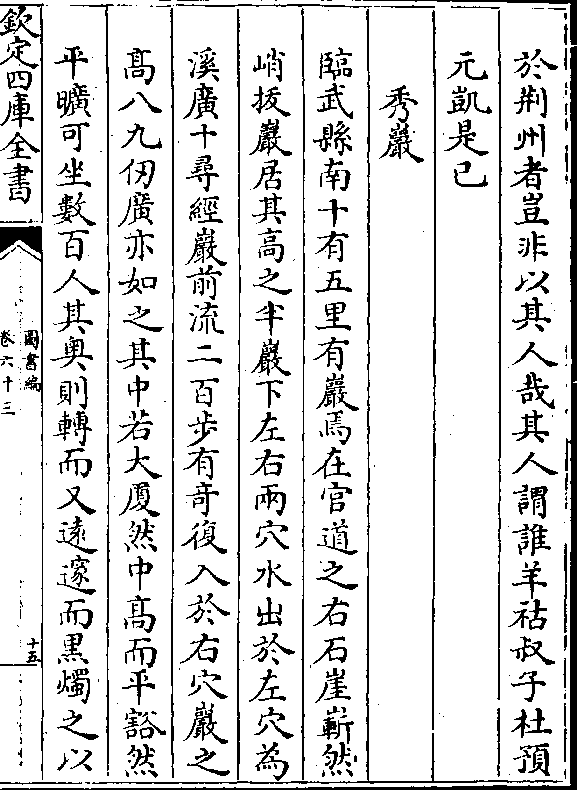 於荆州者豈非以其人哉其人謂誰羊祜叔子杜預
元凱是已
秀巖
臨武縣南十有五里有巖焉在官道之右石崖嶄然
峭拔巖居其高之半巖下左右兩穴水出於左穴為
溪廣十尋經巖前流二百步有竒復入於右穴巖之
髙八九仭廣亦如之其中若大厦然中髙而平豁然
平曠可坐數百人其奥則轉而又逺邃而黒燭之以
欽定四庫全書
圖書編
卷六十三
十五